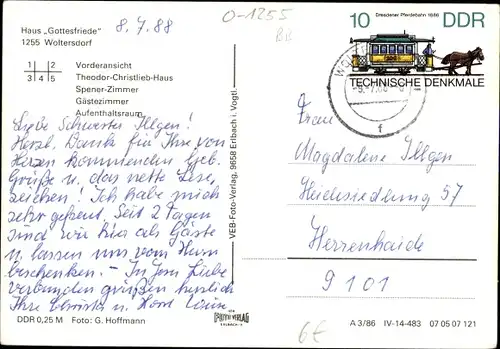 Haus „Gottesfriede"
1255 Woltersdorf
8.7.88
O-1255
BB
1 2
3 4 5
Vorderansicht
Theodor-Christlieb-Haus
Spener-Zimmer
Gästezimmer
Aufenthaltsraum
Liebe Schwester Illgen!
Herzl. Dank für Ihre von
Herzen kommenden Geb.
Grüße u. das nette Lese-
zeichen! Ich habe mich
sehr gefreut. Seit 2 Tagen
sind wir hier als Gäste
u. lassen uns vom Herrn
beschenken. – In Jesu Liebe
verbunden grüßen herzlich
Ihre Christa u. Horst
DDR 0,25 M Foto: G. Hoffmann
VEB-Foto-Verlag, 9658 Erlbach i. Vogtl.
VERLAG
ERLBACH
10 Dresdener Pferdebahn 1886 DDR
TECHNISCHE DENKMALE
Frau
Magdalene Illgen
Heidesiedlung 57
Herrenhaide
9101
6€
A 3/86 IV-14-483 07 05 07 121